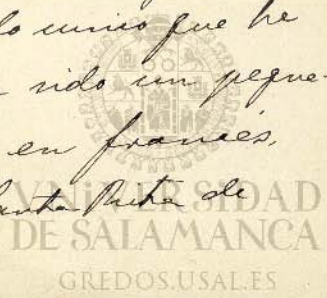 lo unico que he
sido un peque-
en francés,
Santa Rita de
UNIVERSIDAD
DE SALAMANCA
GREDOS.USAL.ES